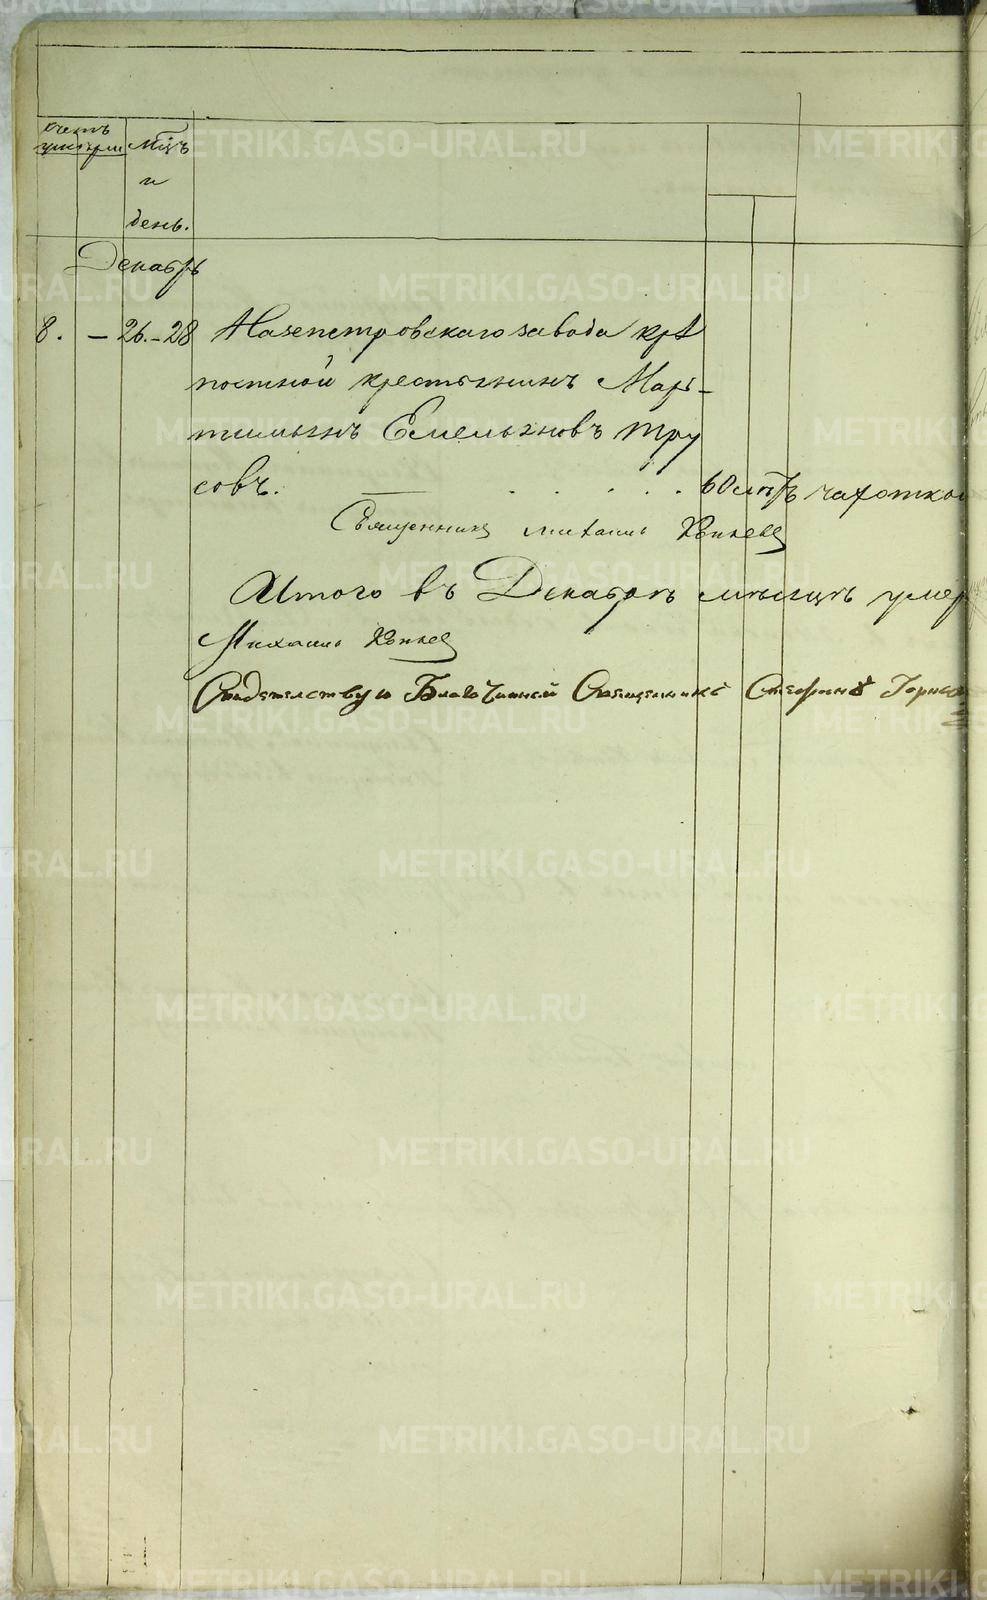 счетъ
умершихъ
Мцъ
и
день.
Декабрь
8. — 26. — 28 Назепетровскаго завода крѣ
постной крестьянинъ Мар-
тимьянъ Емельяновъ Тру
совъ. — . . . . 60 лѣтъ чахоткою
Священникъ Михаилъ
Итого въ Декабрѣ мѣсяцѣ умер
Михаилъ
Свидетелствую Благочинней Священникъ Стефанъ
METRIKI.GASO-URAL.RU